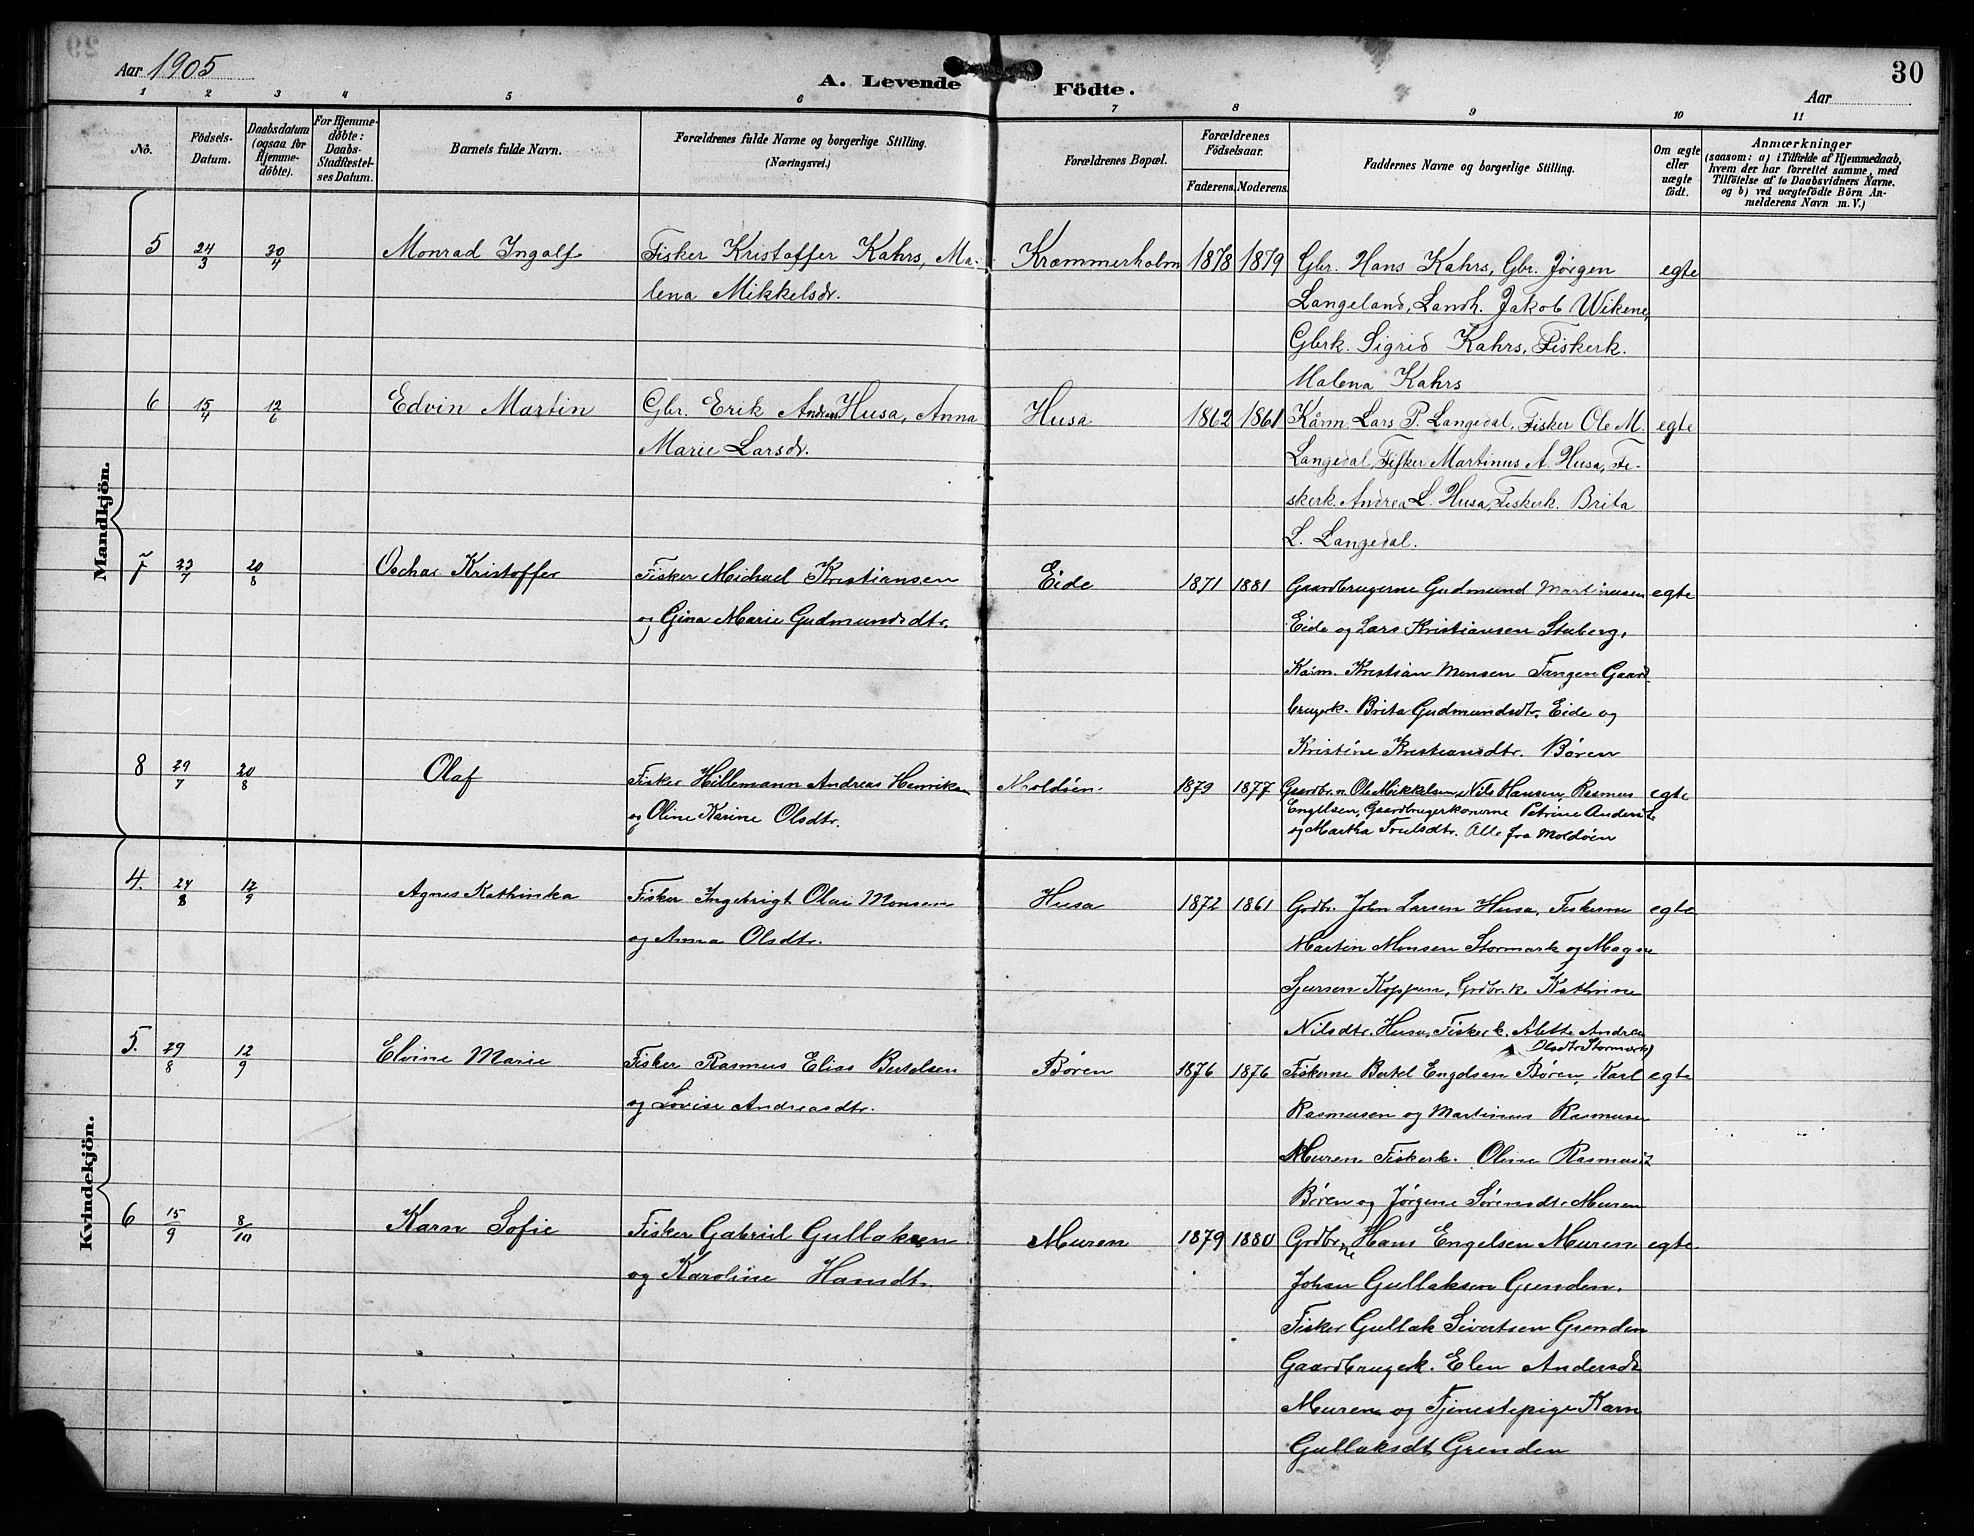 Aar 1905
A. Levende Födte.
30
Aar
1 2 3 4 5 6 7 8 9 10 11
No.
Födsels-
Datum.
Daabsdatum
(ogsaa for
Hjemme-
döbte).
For Hjemme-
döbte:
Daabs-
Stadfæstel-
ses Datum.
Barnets fulde Navn.
Forældrenes fulde Navne og borgerlige Stilling.
(Næringsvei.)
Forældrenes Bopæl.
Forældrenes
Födselsaar.
Faderens. Moderens.
Faddernes Navne og borgerlige Stilling.
Om ægte
eller
uægte
födt.
Anmærkninger
(saasom: a) i Tilfælde af Hjemmedaab,
hvem der har forrettet samme, med
Tilföielse af to Daabsvidners Navne,
og b) ved uægtefödte Börn An-
melderens Navn m. V.)
Mandkjön.
5 24/3 30/4 Monrad Ingolf Fisker Kristoffer Kahrs, Ma- Krammerholm 1878 1879 Gbr. Hans Kahrs, Gbr. Jørgen egte
lena Mikkelsdr. Langeland, Landh. Jakob Wikene,
Gbrk. Sigrid Kahrs, Fiskerk.
Malena Kahrs
6 15/4 12/6 Edvin Martin Gbr. Erik Andreas Husa, Anna Husa 1862 1861 Kårm. Lars P. Langedal, Fisker Ole M. egte
Marie Larsdr. Langedal, Fisker Martinus A. Husa, Fi-
skerk. Andrea L. Husa, Fiskerk. Brita
L. Langedal.
7 23/7 20/8 Oschar Kristoffer Fisker Michael Kristiansen Eide 1871 1881 Gaardbrugerne Gudmund Martinusen egte
og Gina Marie Gudmundsdtr. Eide og Lars Kristiansen Stuberg,
Kårm. Kristian Monsen Tangen Gaard-
brugerk. Brita Gudmundsdtr. Eide og
Kristine Kristiansdtr. Børen
8 29/7 20/8 Olaf Fisker Hillemann Andreas Henriksen Moldöen. 1879 1877 Gaardbr.n Ole Mikkelsen, Nils Hansen, Rasmus egte
og Oline Karine Olsdtr. Engelsen, Gaardbrugerkonerne Petrine Andersdt
og Martha Trulsdtr. Alle fra Moldöen
Kvindekjön.
4. 24/8 12/9 Agnes Kathinka Fisker Ingebrigt Olai Monsen Husa 1872 1861 Grdbr. John Larsen Husa, Fiskerne egte
og Anna Olsdtr. Martin Monsen Stormark og Magne
Sjursen Koppen, Grdbr.k. Kathrine
Nilsdtr. Husa, Fiskerk. Alette Andrea
Olsdtr Stormark)
5. 29/8 12/9 Elvine Marie Fisker Rasmus Elias Bertelsen Børen 1876 1876 Fiskerne Bertel Engelsen Børen, Karl egte
og Lovise Andreasdtr. Rasmusen og Martinus Rasmusen
Muren Fiskerk. Oline Rasmusdt
Børen og Jørgene Sørensdtr. Muren
6 15/9 8/10 Karn Sofie Fisker Gabriel Gullaksen Muren 1879 1880 Grdbr.ne Hans Engelsen Muren egte
og Karoline Hansdt. Johan Gullaksen Grenden.
Fisker Gullak Sivertsen Grenden
Gaardbrugerk. Elen Andersdt
Muren og Tjenestepige Karn
Gullaksdt Grenden